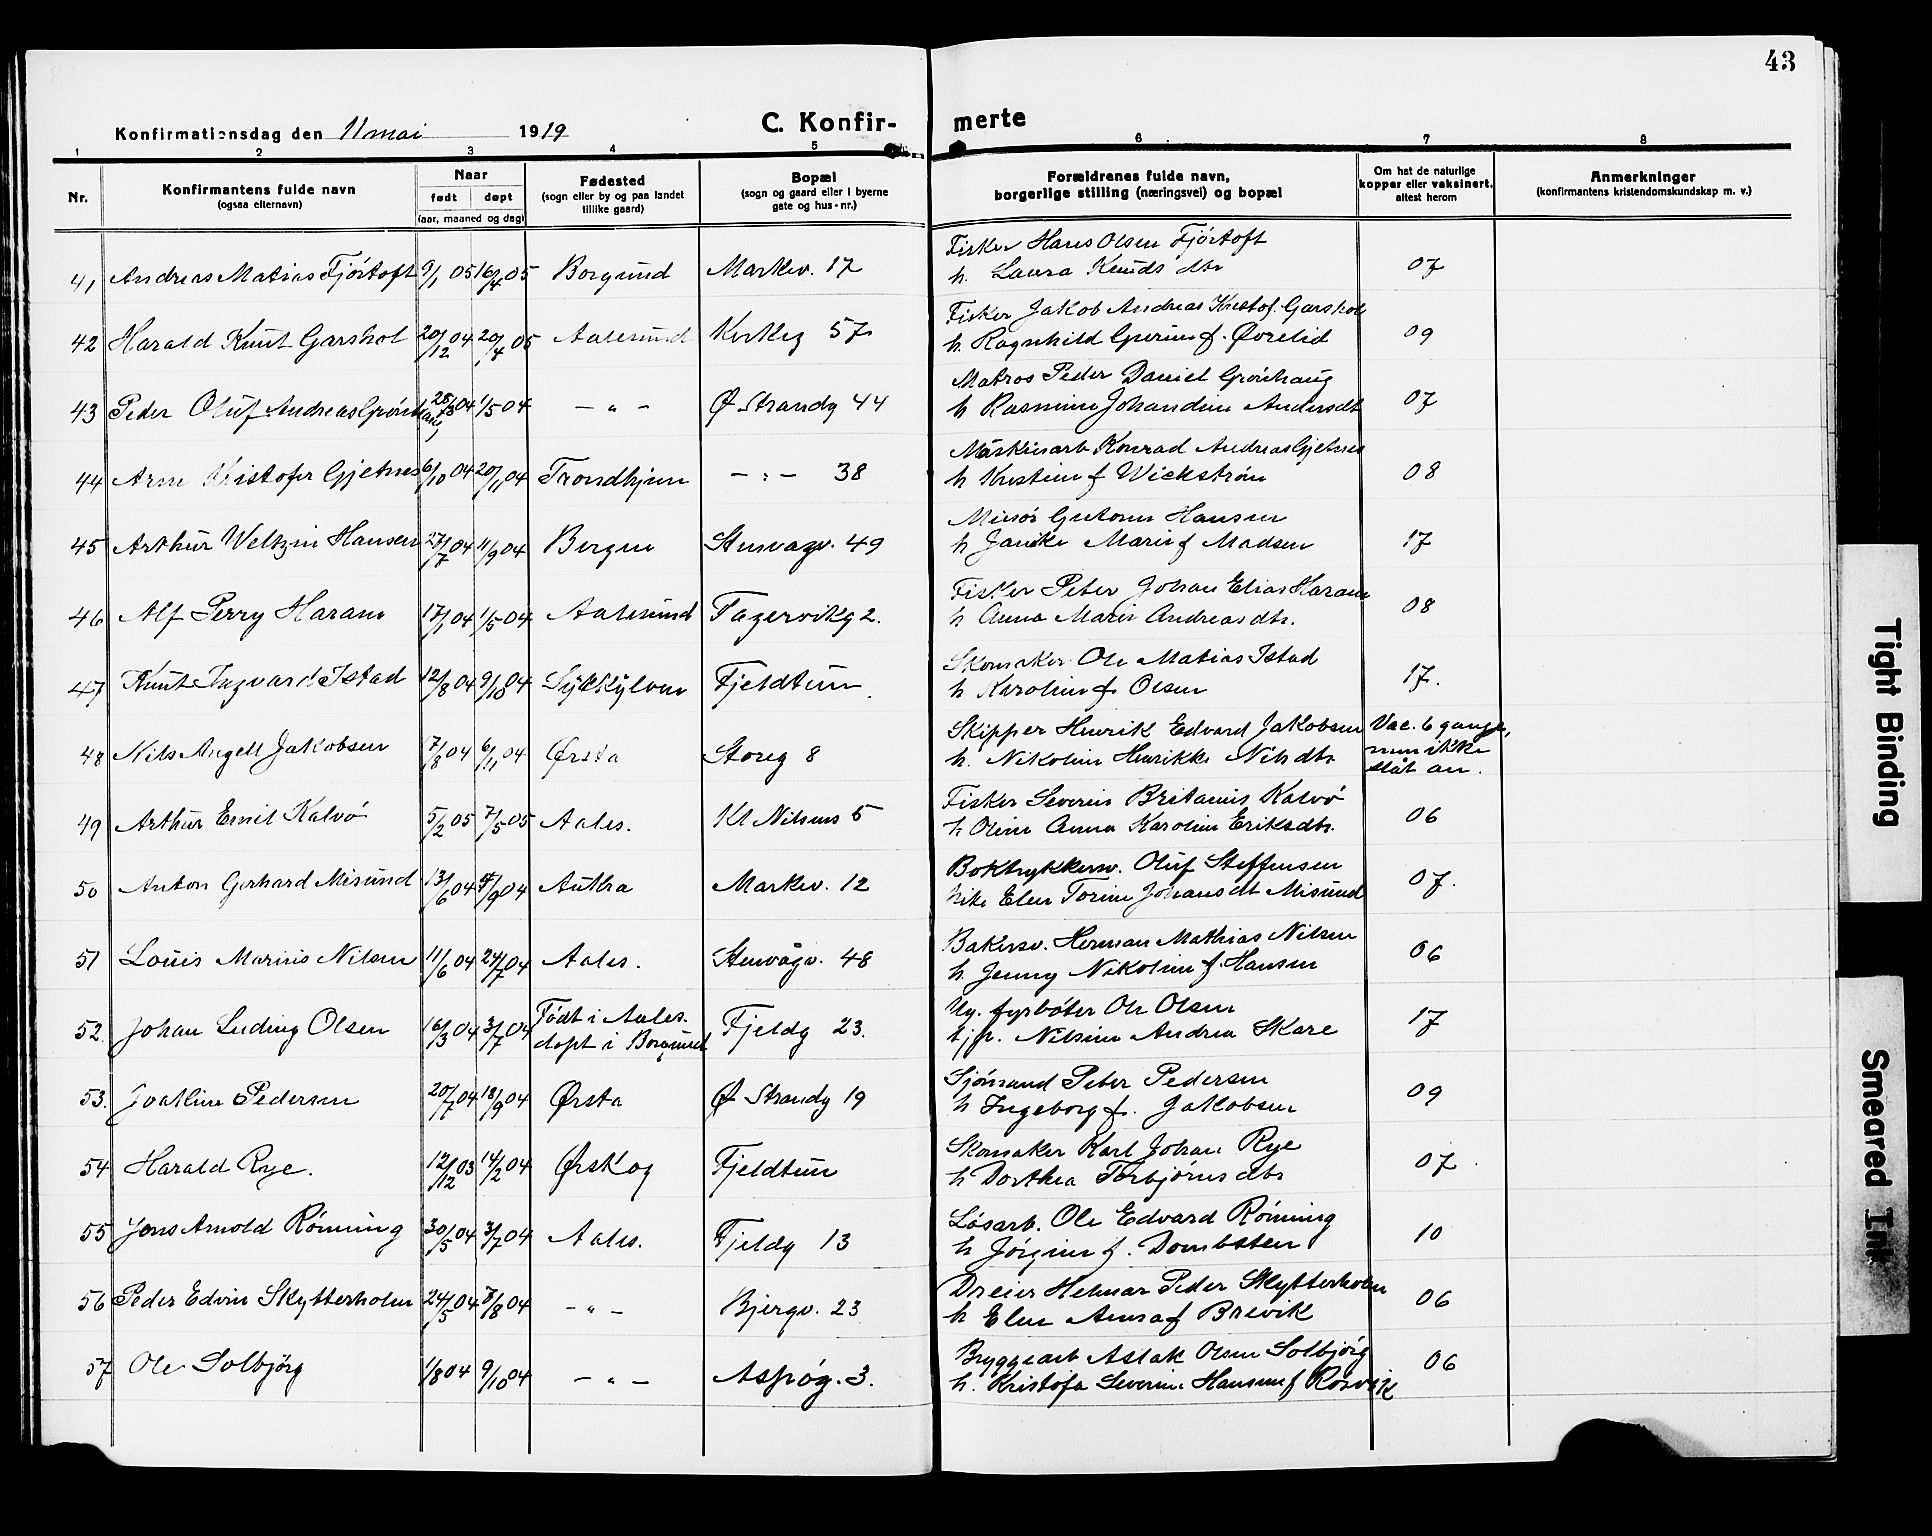 43
Konfirmationsdag den 11 mai 1919
C. Konfirmerte
1 2 3 4 5 6 7 8
Nr.
Konfirmantens fulde navn
(ogsaa elternavn)
Naar
født døpt
(aar, maaned og dag)
Fødested
(sogn eller by og paa landet
tillike gaard)
Bopæl
(sogn og gaard eller i byerne
gate og hus-nr.)
Forældrenes fulde navn,
borgerlige stilling (næringsvei) og bopæl
Om hat de naturlige
kopper eller vaksinert,
attest herom
Anmerkninger
(konfirmantens kristendomskundskap m. v.)
Fisker Hans Olsen Fjörtoft
41 Andreas Matias Fjörtoft 9/1 05 16/4 05 Borgund Markev. 17 h. Laura Knuds dtr 07
Fisker Jakob Andreas Kristof. Garshol
42 Harald Knut Garshol 20/12 04 20/4 05 Aalesund Kirkeg 57 h. Ragnhild Gurine f. Øvrelid 09
Matros Peder Daniel Grönhaug
43 Peder Oluf Andreas Grönhaug 28/3 04 1/5 04 — „ — Ø Strandg 44 h Rasmine Johandine Andersdt 07
Maskinarb Konrad Andreas Gjetnes
44 Arne Kristofer Gjetnes 6/10 04 20/11 04 Trondhjem — „ — 38 h Kristine f Wickström 08
Minör Guttorm Hansen
45 Arthur Weltzin Hansen 27/7 04 11/9 04 Bergen Stenvagv. 49 h Janike Marie f Madsen 17
Fisker Peter Johan Elias Haram
46 Alf Perry Haram 17/1 04 1/5 04 Aalesund Fagervikg 2. h Anna Marie Andreas dtr. 08
Skomaker Ole Matias Istad
47 Knut Ingvard Istad 12/8 04 9/10 04 Sykkylven Fjeldtun. h Karoline f Olsen 17.
Skipper Henrik Edvard Jakobsen Vac. 6 gange,
48 Nils Angell Jakobsen 7/8 04 6/11 04 Ørsta Storeg 8 h. Nikoline Henrikke Nilsdtr men ikke
slåt an.
Fisker Severin Britanius Kalvö
49 Arthur Emil Kalvö 5/2 05 7/5 05 Aales. Kl Nilsens 5 h Oline Anna Karoline Eriksdtr. 06
Boktrykkersv. Oluf Steffensen
50 Anton Gerhard Misund 13/6 04 4/9 04 Aukra Markev. 12 Elen Torine Johansdt Misund 07.
Bakersv. Herman Mathias Nilsen
51 Louis Marius Nilsen 11/6 04 24/7 04 Aales. Stenvågv. 48 h. Jenny Nikoline f. Hansen 06
Ug. fyrböter Ole Olsen
52. Johan Luding Olsen 16/3 04 3/7 04 Født i Aales. døpt i Borgund Fjeldg 23. tj.p. Nilsine Andrea Skare 17
Sjömand Peter Pedersen
53. Joakim Pedersen 20/7 04 18/9 04 Ørsta Ø Strandg 19 h Ingeborg f. Jakobsen 09
Skomaker Karl Johan Rye
54 Harald Rye. 12/12 03 14/2 04 Ørskog Fjeldtun h Dorthea Torbjörns dtr 07
Lösarb. Ole Edvard Rönning
55 Jens Arnold Rönning 30/5 04 3/7 04 Aales. Fjeldg 13 h Jörgine f. Dombesten 10
Dreier Helmar Peder Skytterholm
56 Peder Edvin Skytterholm 24/5 04 7/8 04 — „ — Bjergv. 23 h Elen Anna f Brevik 06
Bryggearb Aslak Olsen Solbjörg
57 Ole Solbjörg 1/8 04 9/10 04 — „ — Aspög. 3. h. Kristofa Severine Hansen f Rosvik 06
Tight Binding
Smeared Ink